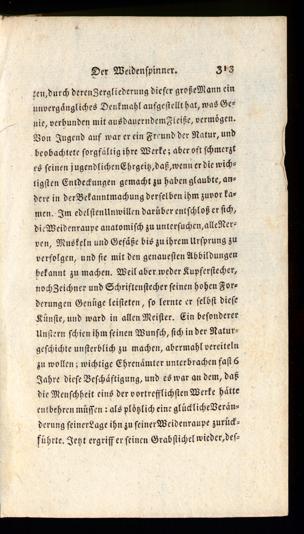 Der Weidenspinner. 313
ten, durch deren Zergliederung dieser große Mann ein
unvergängliches Denkmahl aufgestellt hat, was Ge-
nie, verbunden mit ausdauerndem Fleiße, vermögen.
Von Jugend auf war er ein Freund der Natur, und
beobachtete sorgfältig ihre Werke; aber oft schmerzt
es seinen jugendlichen Ehrgeitz, daß, wenn er die wich-
tigsten Entdeckungen gemacht zu haben glaubte, an-
dere in der Bekanntmachung derselben ihm zuvor ka-
men. Im edelsten Unwillen darüber entschloß er sich,
die Weidenraupe anatomisch zu untersuchen, alle Ner-
ven, Muskeln und Gefäße bis zu ihrem Ursprung zu
verfolgen, und sie mit den genauesten Abbildungen
bekannt zu machen. Weil aber weder Kupferstecher,
noch Zeichner und Schriftenstecher seinen hohen For-
derungen Genüge leisteten, so lernte er selbst diese
Künste, und ward in allen Meister. Ein besonderer
Unstern schien ihm seinen Wunsch, sich in der Natur-
geschichte unsterblich zu machen, abermahl vereiteln
zu wollen; wichtige Ehrenämter unterbrachen fast 6
Jahre diese Beschäftigung, und es war an dem, daß
die Menschheit eins der vortrefflichsten Werke hätte
entbehren müssen: als plötzlich eine glückliche Verän-
derung seiner Lage ihn zu seiner Weidenraupe zurück-
führte. Jetzt ergriff er seinen Grabstichel wieder, des-